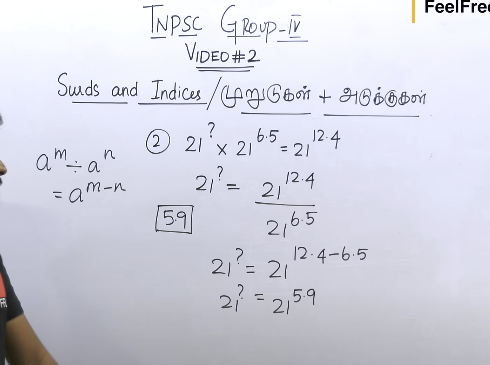 FeelFree
TNPSC GROUP-IV
VIDEO #2
Surds and Indices / முறுடுகள் + அடுக்குகள்
② 21^? × 21^6.5 = 21^12.4
a^m ÷ a^n
= a^m-n
21^? = 21^12.4 / 21^6.5
5.9
21^? = 21^12.4-6.5
21^? = 21^5.9